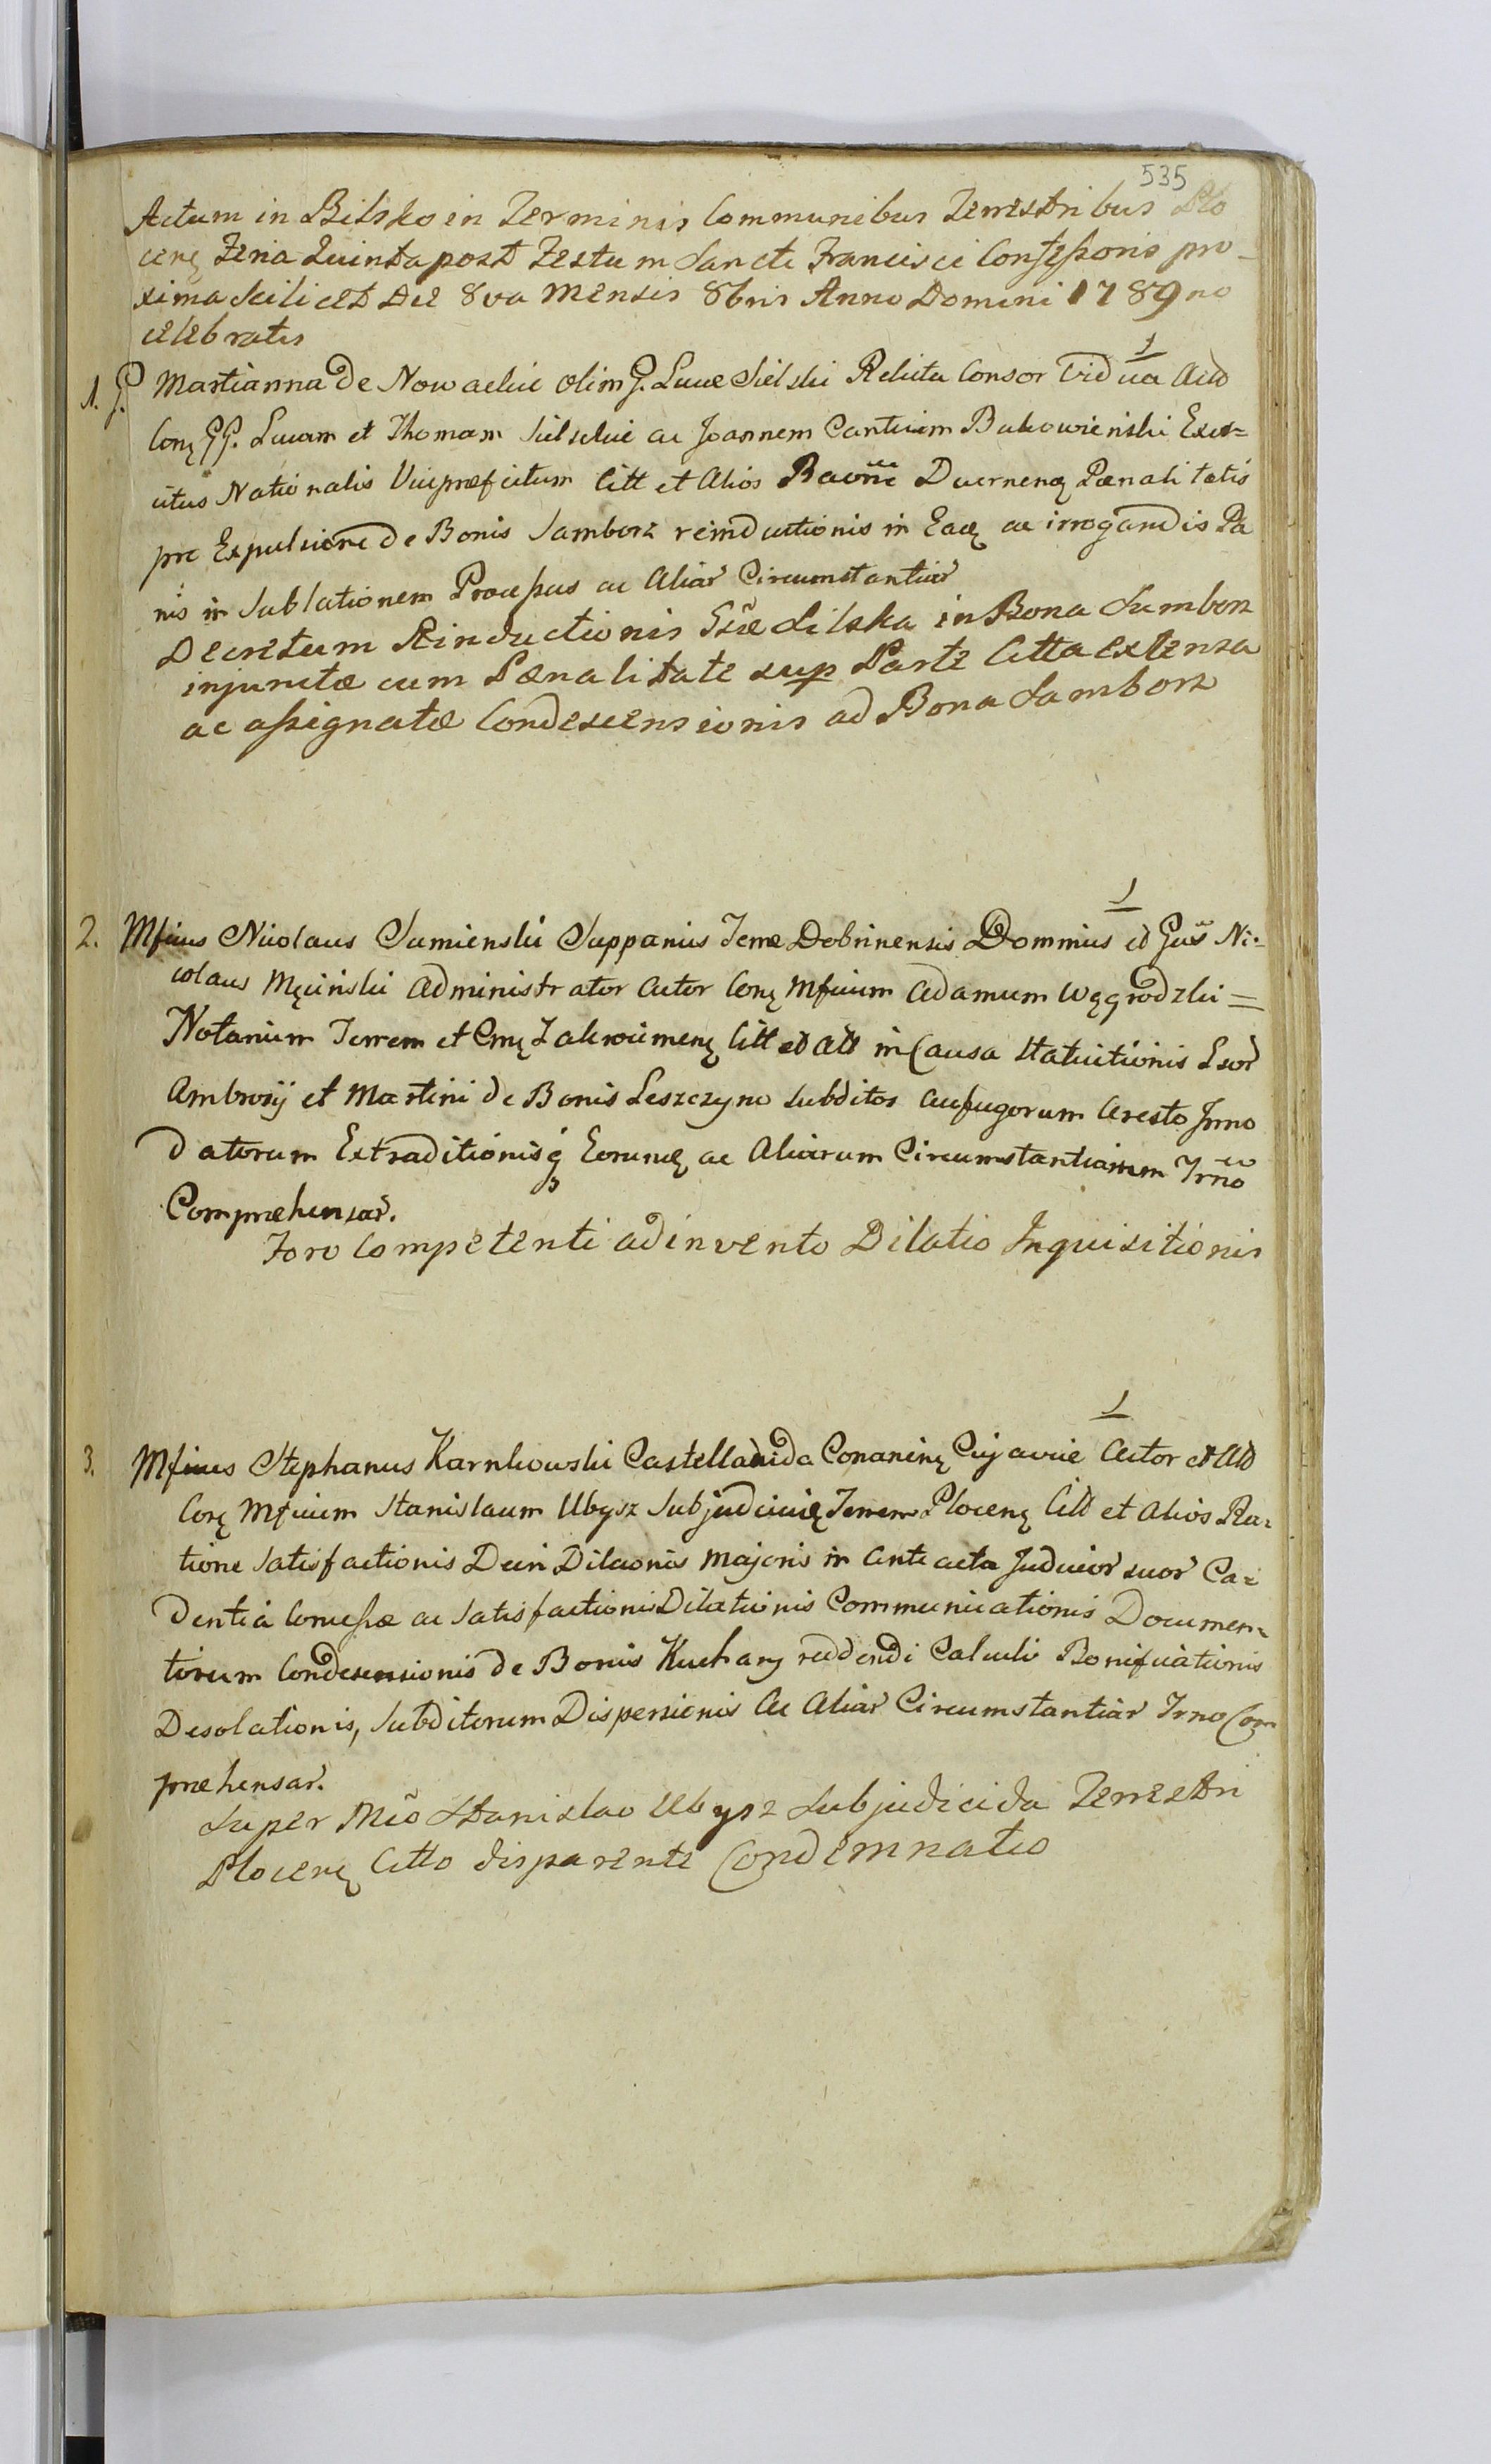 535
Actum in Bilsko in Terminis Communibus Terrestribus Plo
cenę Feria Quinta post Festum Sancti Francisci Confessoris pro-
xima Scilicet Die 8va Mensis 8bris Anno Domini 1789no
celebratis
1
1. G. Marianna de Nowackie olim G. Lucæ Sielski Relicta Consor Vidua Actt
Conę GG. Lucam et Thomam Sielskie ac Joannem Cantium Bukowieński Exer=
citus Nationalis Vicepræfectum Citt et Alios Raõne Pænalitatis
pro Expulsione de Bonis Samborz reinductionis in Eadę ac irrogandis Pæ
nis in Sublationem Processus ac Aliar̃ Circumstantiar̃
Decretum Reinductionis Gsæ Silska in Bona Samborz
injunctæ cum Pænalitate sup Parte Citta extensa
ac assignatæ Condescensionis ad Bona Samborz
1
2. Mfcus Nicolaus Sumienski Suppanius Terræ Dobrinensis Dominus et Gsus Ni=
colaus Męciński Administrator Actor Conę Mficum Adamum Węgrodzki=
Notarium Terrem et Citt et Att in Causa Statuitionis Lsor̃
Ambrosij et Martini de Bonis Leszczyno Subditos Aufugorum Aresto Inno
datorum Extraditionisq̢ Eorundę ac Aliarum Circumstantiarum Trno
Comprehensar̃.
Foro Competenti adinvento Dilatio Inquisitionis
1
3. Mficus Stephanus Karnkowski Castellanida Conarinę Cujaviæ Actor et Att
Corę Mficum Stanislaum Ubysz Subjudicidę Terrem Plocenę Citt et Alios Ra=
tione Satisfactionis Decri Dilaonis Majoris in Anteacta Judicior̃ suor̃ Ca=
dentia Concessæ ac Satisfactionis Dilationis Communicationis Documen=
torum Condescensionis de Bonis Kuchary reddendi Calculi Bonificationis
Desolationis, Subditorum Dispersionis Ac Aliar̃ Circumstantiar̃ Trno Com
præhensar̃.
Super Mco Stanislao Ubysz Subjudicida Terrestri
Plocenę Citto disparente Condemnatio